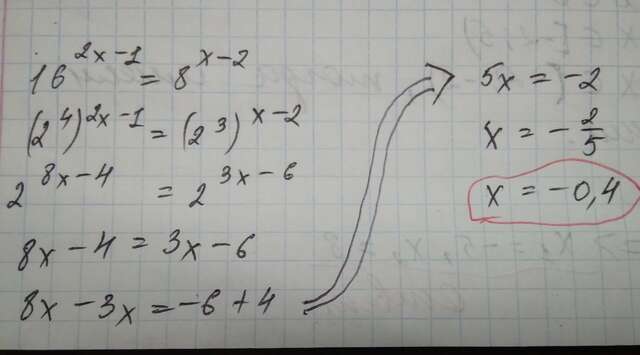 16^{2x-1} = 8^{x-2}
(2^4)^{2x-1} = (2^3)^{x-2}
2^{8x-4} = 2^{3x-6}
8x - 4 = 3x - 6
8x - 3x = -6 + 4
5x = -2
x = -\frac{2}{5}
x = -0,4